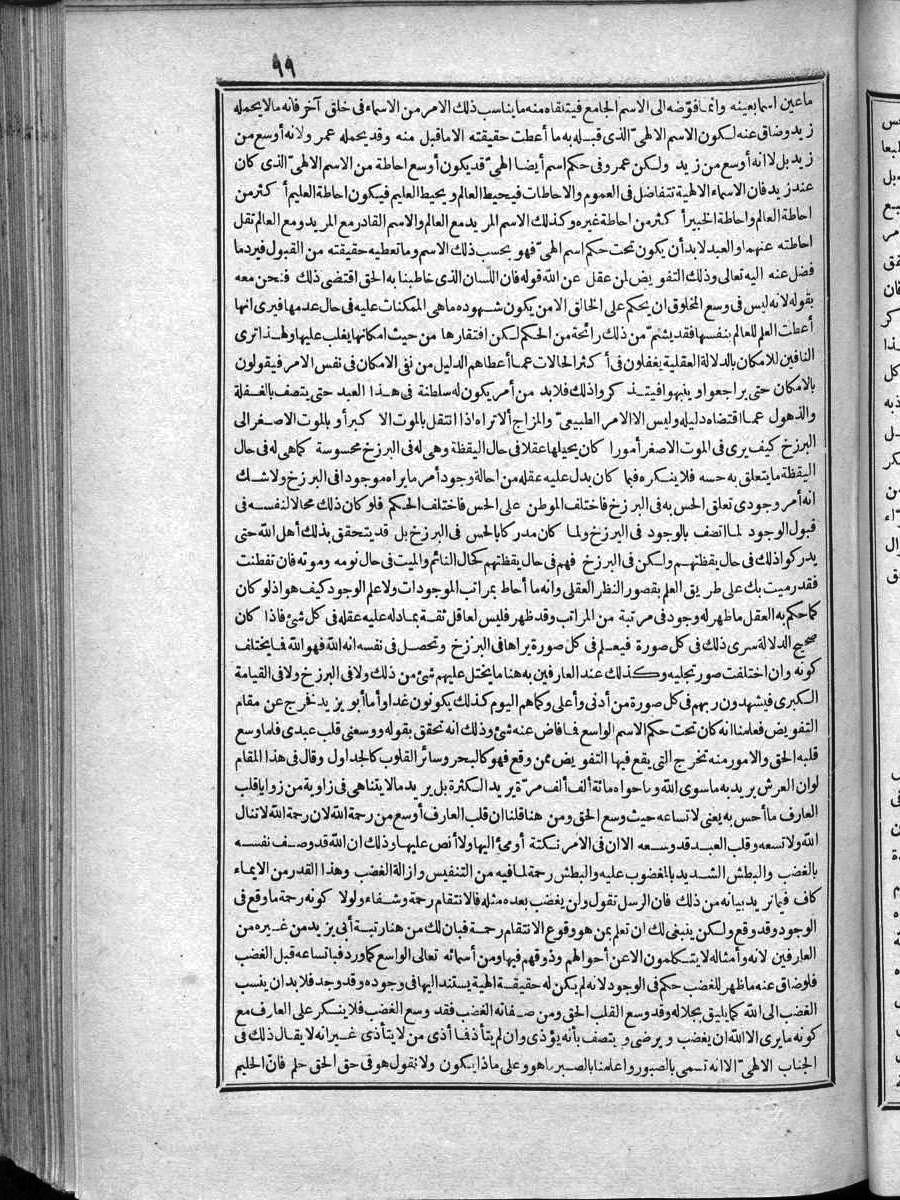 ٩٩
ما عين اسما بعينه وانما فوّضه الى الاسم الجامع فيتلقاه منه ما يناسب ذلك الامر من الاسماء فى خلق آخر فانه ما لا يحمله
زيد وضاق عنه لكون الاسم الالهىّ الذى قبله به ما أعطت حقيقته الا ما قبل منه وقد يحمله عمر ولانه أوسع من
زيد بل لا انه أوسع من زيد ولكن عمر وفى حكم اسم أيضا الهىّ قد يكون أوسع احاطة من الاسم الالهىّ الذى كان
عند زيد فان الاسماء الالهية تتفاضل فى العموم والاحاطات فيحيط العالم ويحيط العليم فيكون احاطة العليم أكثر من
احاطة العالم واحاطة الخبير أكثر من احاطة غيره وكذلك الاسم المريد مع العالم والاسم القادر مع المريد ومع العالم تقل
احاطته عنهما والعبد لا بد أن يكون تحت حكم اسم الهىّ فهو بحسب ذلك الاسم وما تعطيه حقيقته من القبول فيرد ما
فضل عنه اليه تعالى وذلك التفويض لمن عقل عن الله قوله فان اللسان الذى خاطبنا به الحق اقتضى ذلك فنحن معه
بقوله لانه ليس فى وسع المخلوق ان يحكم على الخالق الا من يكون شهوده ما هى الممكنات عليه فى حال عدمها فيرى انها
أعطت العلم للعالم بنفسها فقد يشمّ من ذلك رائحة من الحكم لكن افتقارها من حيث امكانها يغلب عليها ولهذا ترى
النافين للامكان بالدلالة العقلية يغفلون فى أكثر الحالات عما أعطاهم الدليل من نفى الامكان فى نفس الامر فيقولون
بالامكان حتى يراجعوا وينبهوا فيتذكروا ذلك فلابد من أمر يكون له سلطنة فى هذا العبد حتى يتصف بالغفلة
والذهول عما اقتضاه دليله وليس الا الامر الطبيعىّ والمزاج ألا تراه اذا انتقل بالموت الاكبر أو بالموت الاصغر الى
البرزخ كيف يرى فى الموت الاصغر أمورا كان يحيلها عقلا فى حال اليقظة وهى له فى البرزخ محسوسة كما هى له فى حال
اليقظة ما يتعلق به حسه فلا ينكره فيما كان يدل عليه عقله من احالة وجود أمر ما يراه موجودا فى البرزخ ولا شك
انه أمر وجودى تعلق الحس به فى البرزخ فاختلف الموطن على الحس فاختلف الحكم فلو كان ذلك محالا لنفسه فى
قبول الوجود لما اتصف بالوجود فى البرزخ ولما كان مدركا بالحس فى البرزخ بل قد يتحقق بذلك أهل الله حتى
يدركوا ذلك فى حال يقظتهم ولكن فى البرزخ فهم فى حال يقظتهم كحال النائم والميت فى حال نومه وموته فان تفطنت
فقد رميت بك على طريق العلم بقصور النظر العقلى وانه ما أحاط بمراتب الموجودات ولا علم الوجود كيف هو اذ لو كان
كما حكم به العقل ما ظهر له وجود فى مرتبة من المراتب وقد ظهر فليس لعاقل ثقة بما دله عليه عقله فى كل شئ فاذا كان
صحيح الدلالة سرى ذلك فى كل صورة فيعلم فى كل صورة يراها فى البرزخ وتحصل فى نفسه انه الله فهو الله فما يختلف
كونه وان اختلفت صور تجليه وكذلك عند العارفين به هنا ما يختل عليهم شئ من ذلك ولا فى البرزخ ولا فى القيامة
الكبرى فيشهدون ربهم فى كل صورة من أدنى وأعلى وكما هم اليوم كذلك يكونون غدا وأما أبو يزيد فخرج عن مقام
التفويض فعلمنا انه كان تحت حكم الاسم الواسع فما فاض عنه شئ وذلك انه تحقق بقوله ووسعنى قلب عبدى فلما وسع
قلبه الحق والامور منه تخرج التى يقع فيها التفويض ممن وقع فهو كالبحر وسائر القلوب كالجداول وقال فى هذا المقام
لو ان العرش يريد به ما سوى الله وما حواه مائة ألف ألف مرّة يريد الكثرة بل يريد ما لا يتناهى فى زاوية من زوايا قلب
العارف ما أحس به يعنى لاتساعه حيث وسع الحق ومن هنا قلنا ان قلب العارف أوسع من رحمة الله لان رحمة الله لا تنال
الله ولا تسعه وقلب العبد قد وسعه الا ان فى الامر نكتة أومئ اليها ولا أنص عليها وذلك ان الله قد وصف نفسه
بالغضب والبطش الشديد بالمغضوب عليه والبطش رحمة لما فيه من التنفيس وازالة الغضب وهذا القدر من الايماء
كاف فيما نريد بيانه من ذلك فان الرسل تقول ولن يغضب بعده مثله فالانتقام رحمة وشفاء ولولا كونه رحمة ما وقع فى
الوجود وقد وقع ولكن ينبغى لك ان تعلم بمن هو وقوع الانتقام رحمة فبان لك من هنا رتبة أبى يزيد من غيره من
العارفين لانه وأمثاله لا يتكلمون الا عن أحوالهم وذوقهم فيها ومن أسمائه تعالى الواسع كما ورد فباتساعه قبل الغضب
فلو ضاق عنه ما ظهر للغضب حكم فى الوجود لانه لم يكن له حقيقة الهية يستند اليها فى وجوده وقد وجد فلا بد ان ينسب
الغضب الى الله كما يليق بجلاله وقد وسع القلب الحق ومن صفاته الغضب فقد وسع الغضب فلا ينكر على العارف مع
كونه ما يرى الا الله ان يغضب ويرضى ويتصف بأنه يؤذى وان لم يتأذ فما أذى من لا يتأذى غير انه لا يقال ذلك فى
الجناب الالهىّ الا انه تسمى بالصبور واعلمنا بالصبر ما هو وعلى ماذا يكون ولا نقول هو فى حق الحق حلم فانّ الحليم